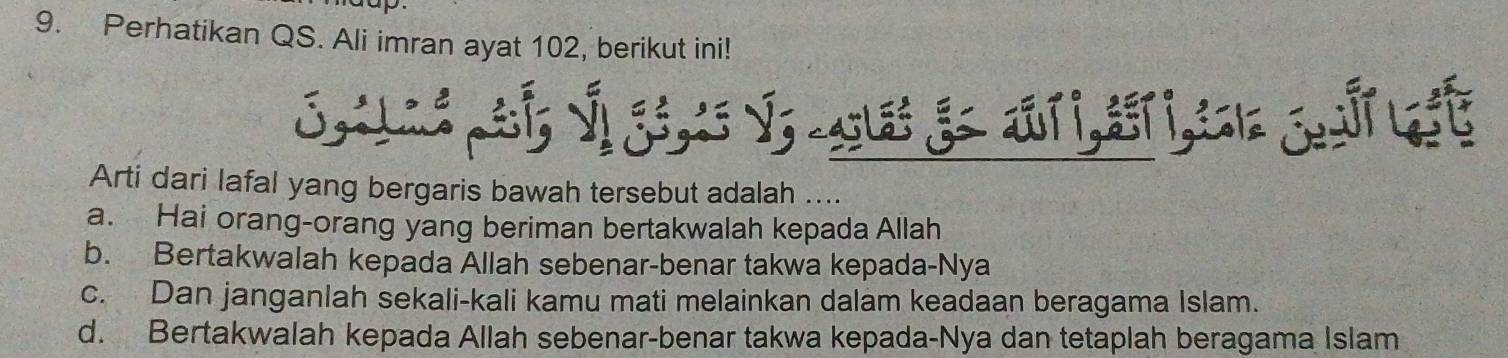 9. Perhatikan QS. Ali imran ayat 102, berikut ini!
يَٰٓأَيُّهَا ٱلَّذِينَ ءَامَنُوا۟ ٱتَّقُوا۟ ٱللَّهَ حَقَّ تُقَاتِهِۦ وَلَا تَمُوتُنَّ إِلَّا وَأَنتُم مُّسْلِمُونَ
Arti dari lafal yang bergaris bawah tersebut adalah ....
a. Hai orang-orang yang beriman bertakwalah kepada Allah
b. Bertakwalah kepada Allah sebenar-benar takwa kepada-Nya
c. Dan janganlah sekali-kali kamu mati melainkan dalam keadaan beragama Islam.
d. Bertakwalah kepada Allah sebenar-benar takwa kepada-Nya dan tetaplah beragama Islam